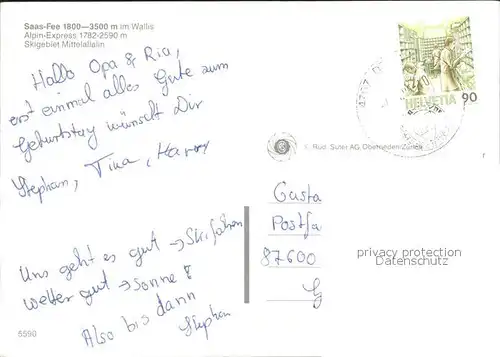 Saas-Fee 1800—3500 m im Wallis
Alpin-Express 1782-2590 m
Skigebiet Mittelallalin
Hallo Opa & Ria,
erst einmal alles Gute zum
Geburtstag wünscht Dir
Stephan, Tina, Harry
Uns geht es gut → Skifahren
wetter gut → Sonne!
Also bis dann
Stephan
5590
HELVETIA 90
Rud. Suter AG, Oberrieden/Zürich
Gusta
Postfa
87600
privacy protection
Datenschutz